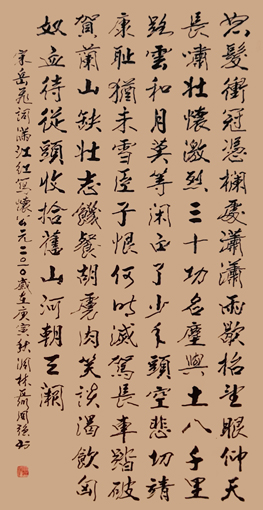 怒髮衝冠憑欄處瀟瀟雨歇抬望眼仰天
長嘯壯懷激烈三十功名塵與土八千里
路雲和月莫等閑白了少年頭空悲切靖
康恥猶未雪臣子恨何時滅駕長車踏破
賀蘭山缺壯志饑餐胡虜肉笑談渴飲匈
奴血待從頭收拾舊山河朝天闕
宋岳飛詞滿江紅寫懷公元二〇一〇歲在庚寅秋